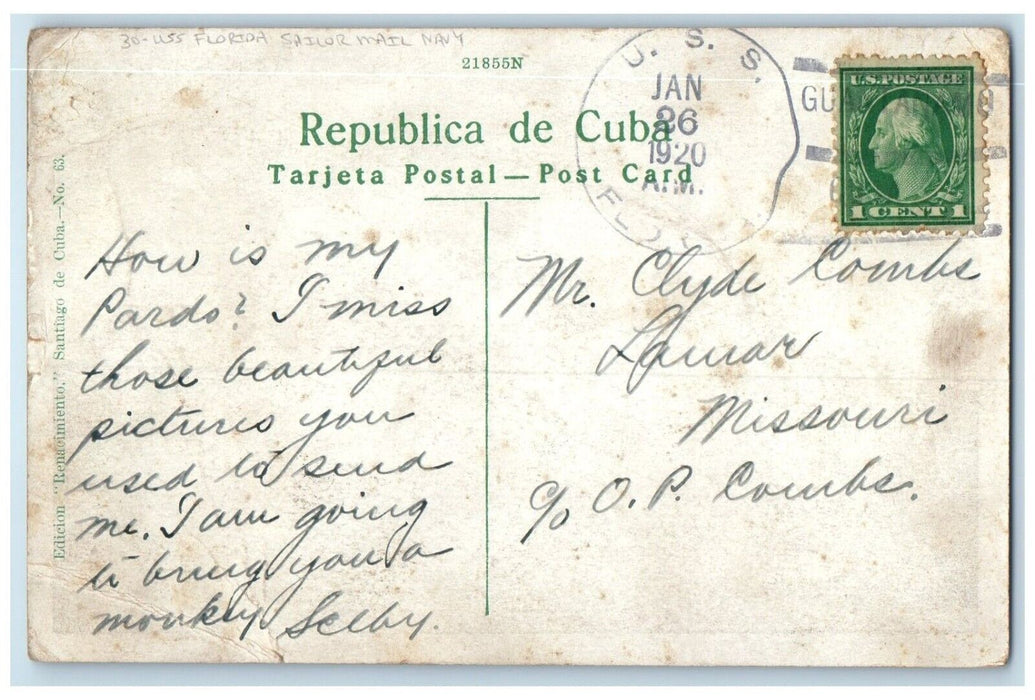 30-USS FLORIDA SAILOR MAIL NAVY
21855N
U. S. S.
JAN
26
1920
A.M.
FLO
GU
U.S. POSTAGE
1 CENT 1
Republica de Cuba
Tarjeta Postal — Post Card
Edicion "Renacimiento." Santiago de Cuba.—No. 63.
How is my
Pardo? I miss
those beautiful
pictures you
used to send
me. I am going
to bring you a
monkey Selby.
Mr. Clyde Combs
Lamar
Missouri
c/o O. P. Combs.